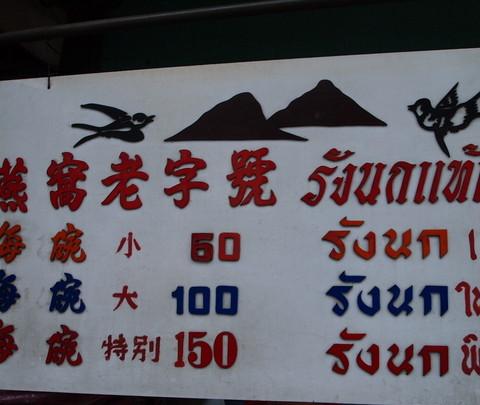 燕窩老字號 รังนกแท้
每碗 小 60 รังนก
每碗 大 100 รังนก ให
每碗 特別 150 รังนก พิ